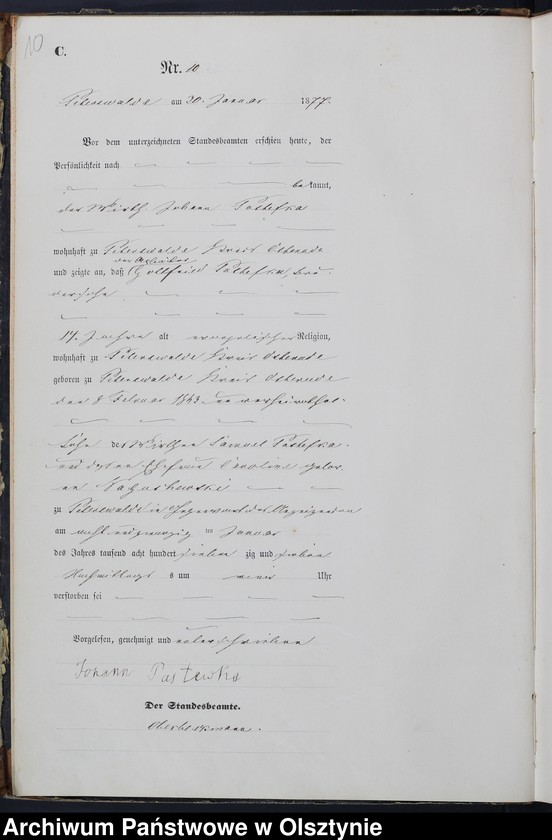 10
C.
Nr. 10
Peterswalde am 30. Januar 1877.
Vor dem unterzeichneten Standesbeamten erschien heute, der
Persönlichkeit nach
bekannt,
der Wirth Johann Pastefka
wohnhaft zu Peterswalde Kreis Osterode
der Arbeiter
und zeigte an, daß Gottfried Pastefka
alt evangelischer Religion,
wohnhaft zu Peterswalde Kreis Osterode
geboren zu Peterswalde Kreis Osterode
den 8 Februar 1843 verheirathet
Sohn des Wirthen Samuel Pastefka
und dessen Ehefrau Caroline gebor-
en
zu Peterswalde in
am acht und zwanzig ten Januar
des Jahres tausend acht hundert sieben zig und sieben
Nachmittags um neun Uhr
verstorben sei
Vorgelesen, genehmigt und unterschrieben
Johann Pastewka
Der Standesbeamte.
Archiwum Państwowe w Olsztynie